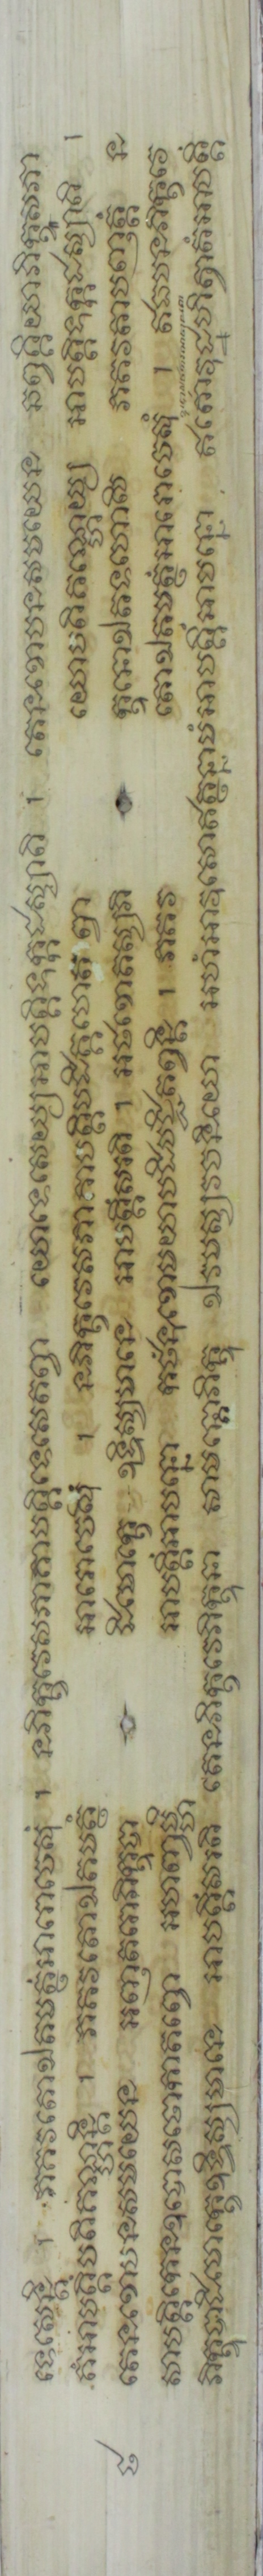 ទេសេន្តិ ។ ភគវតោ ឯតមត្ថំ អារោចេសុំ ។ ន ភិក្ខវេ សភាគា អាបត្តិ ទេសេតព្វា យោ ទេសេយ្យ អាបត្តិ ទុក្កដស្សាតិ ។ តេន ខោ បន សមយេន ឆព្វគ្គិយា ភិក្ខូ សភា
គំ អាបត្តឹ បតិគណ្ហន្តិ ។ ភគវតោ ឯតមត្ថំ អារោចេសុំ ។ ន ភិក្ខវេ សភាគា អាបត្តិ បដិគ្គហេតព្វា យោ បតិគណ្ហេយ្យ អាបត្តិ ទុក្កដស្សាតិ ។
តេន ខោ បន សមយេន អញ្ញតរោ ភិក្ខុ បាដិមោក្ខេ ឧទ្ទិស្សមានេ អាបត្តឹ សរតិ ។ អថខោ តស្ស ភិក្ខុនោ ឯតទហោសិ ភគវតា បញ្ញត្តំ ន
សាបត្តិកេន ឧបោសថោ កាតព្វោ អហញ្ចម្ហិ អាបត្តឹ អាបន្នោ កថំ នុ ខោ មយា បដិបជ្ជិតព្វន្តិ ។ ភគវតោ ឯតមត្ថំ អារោចេសុំ ។ ឥធ បន ភិក្ខវេ
ភិក្ខុ បាដិមោក្ខេ ឧទ្ទិស្សមានេ អាបត្តឹ សរតិ តេន ភិក្ខវេ ភិក្ខុនា សាមន្តោ ភិក្ខុ ឯវមស្ស វចនិយោ អហំ អាវុសោ ឥត្ថន្នាមំ អាបត្តឹ អាបន្នោ ឥតោ វុដ្ឋហិត្វា តំ អាបត្តឹ